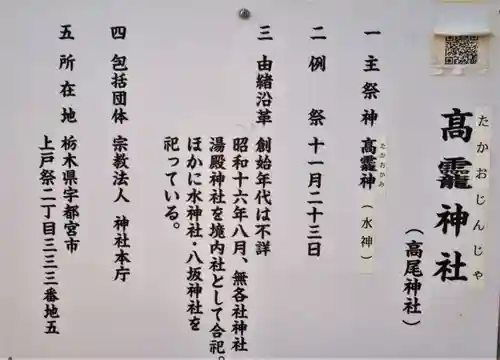 たかおじんじゃ
高龗神社
(高尾神社)
一 主祭神 高龗神(水神)
たかおかみ
二 例祭 十一月二十三日
三 由緒沿革 創始年代は不詳
昭和十六年八月、無各社神社
湯殿神社を境内社として合祀。
ほかに水神社・八坂神社を
祀っている。
四 包括団体 宗教法人 神社本庁
五 所在地 栃木県宇都宮市
上戸祭二丁目三三三番地五